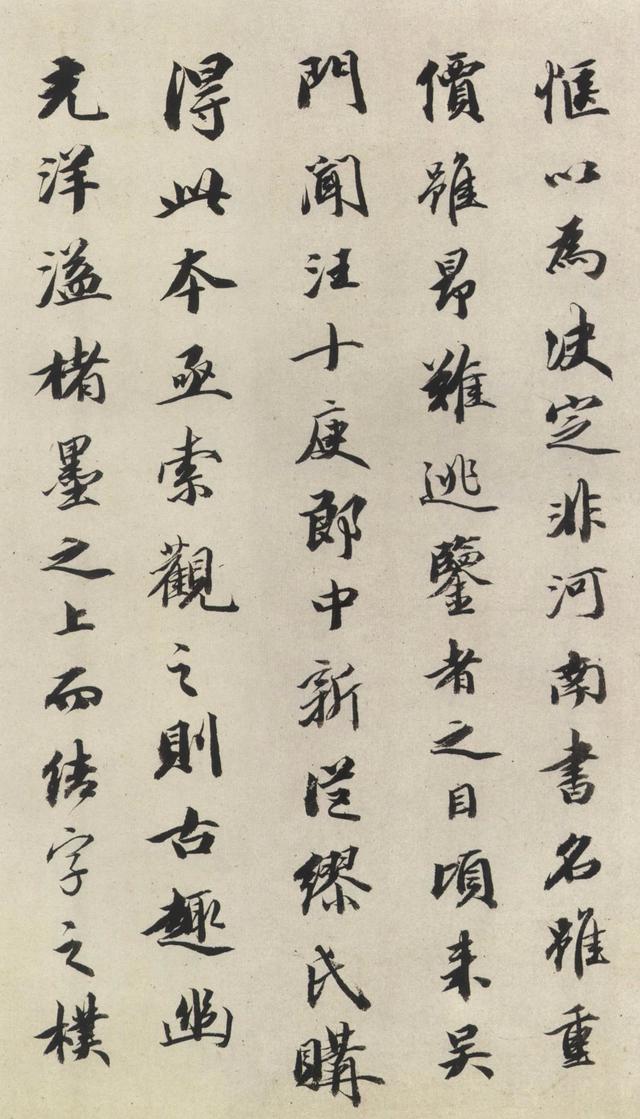 惬以為決定非河南書名雖重
價雖昂難逃鑒者之目頃来吴
門聞汪十庚郎中新從繆氏購
得此本亟索觀之則古趣幽
光洋溢楮墨之上而結字之樸